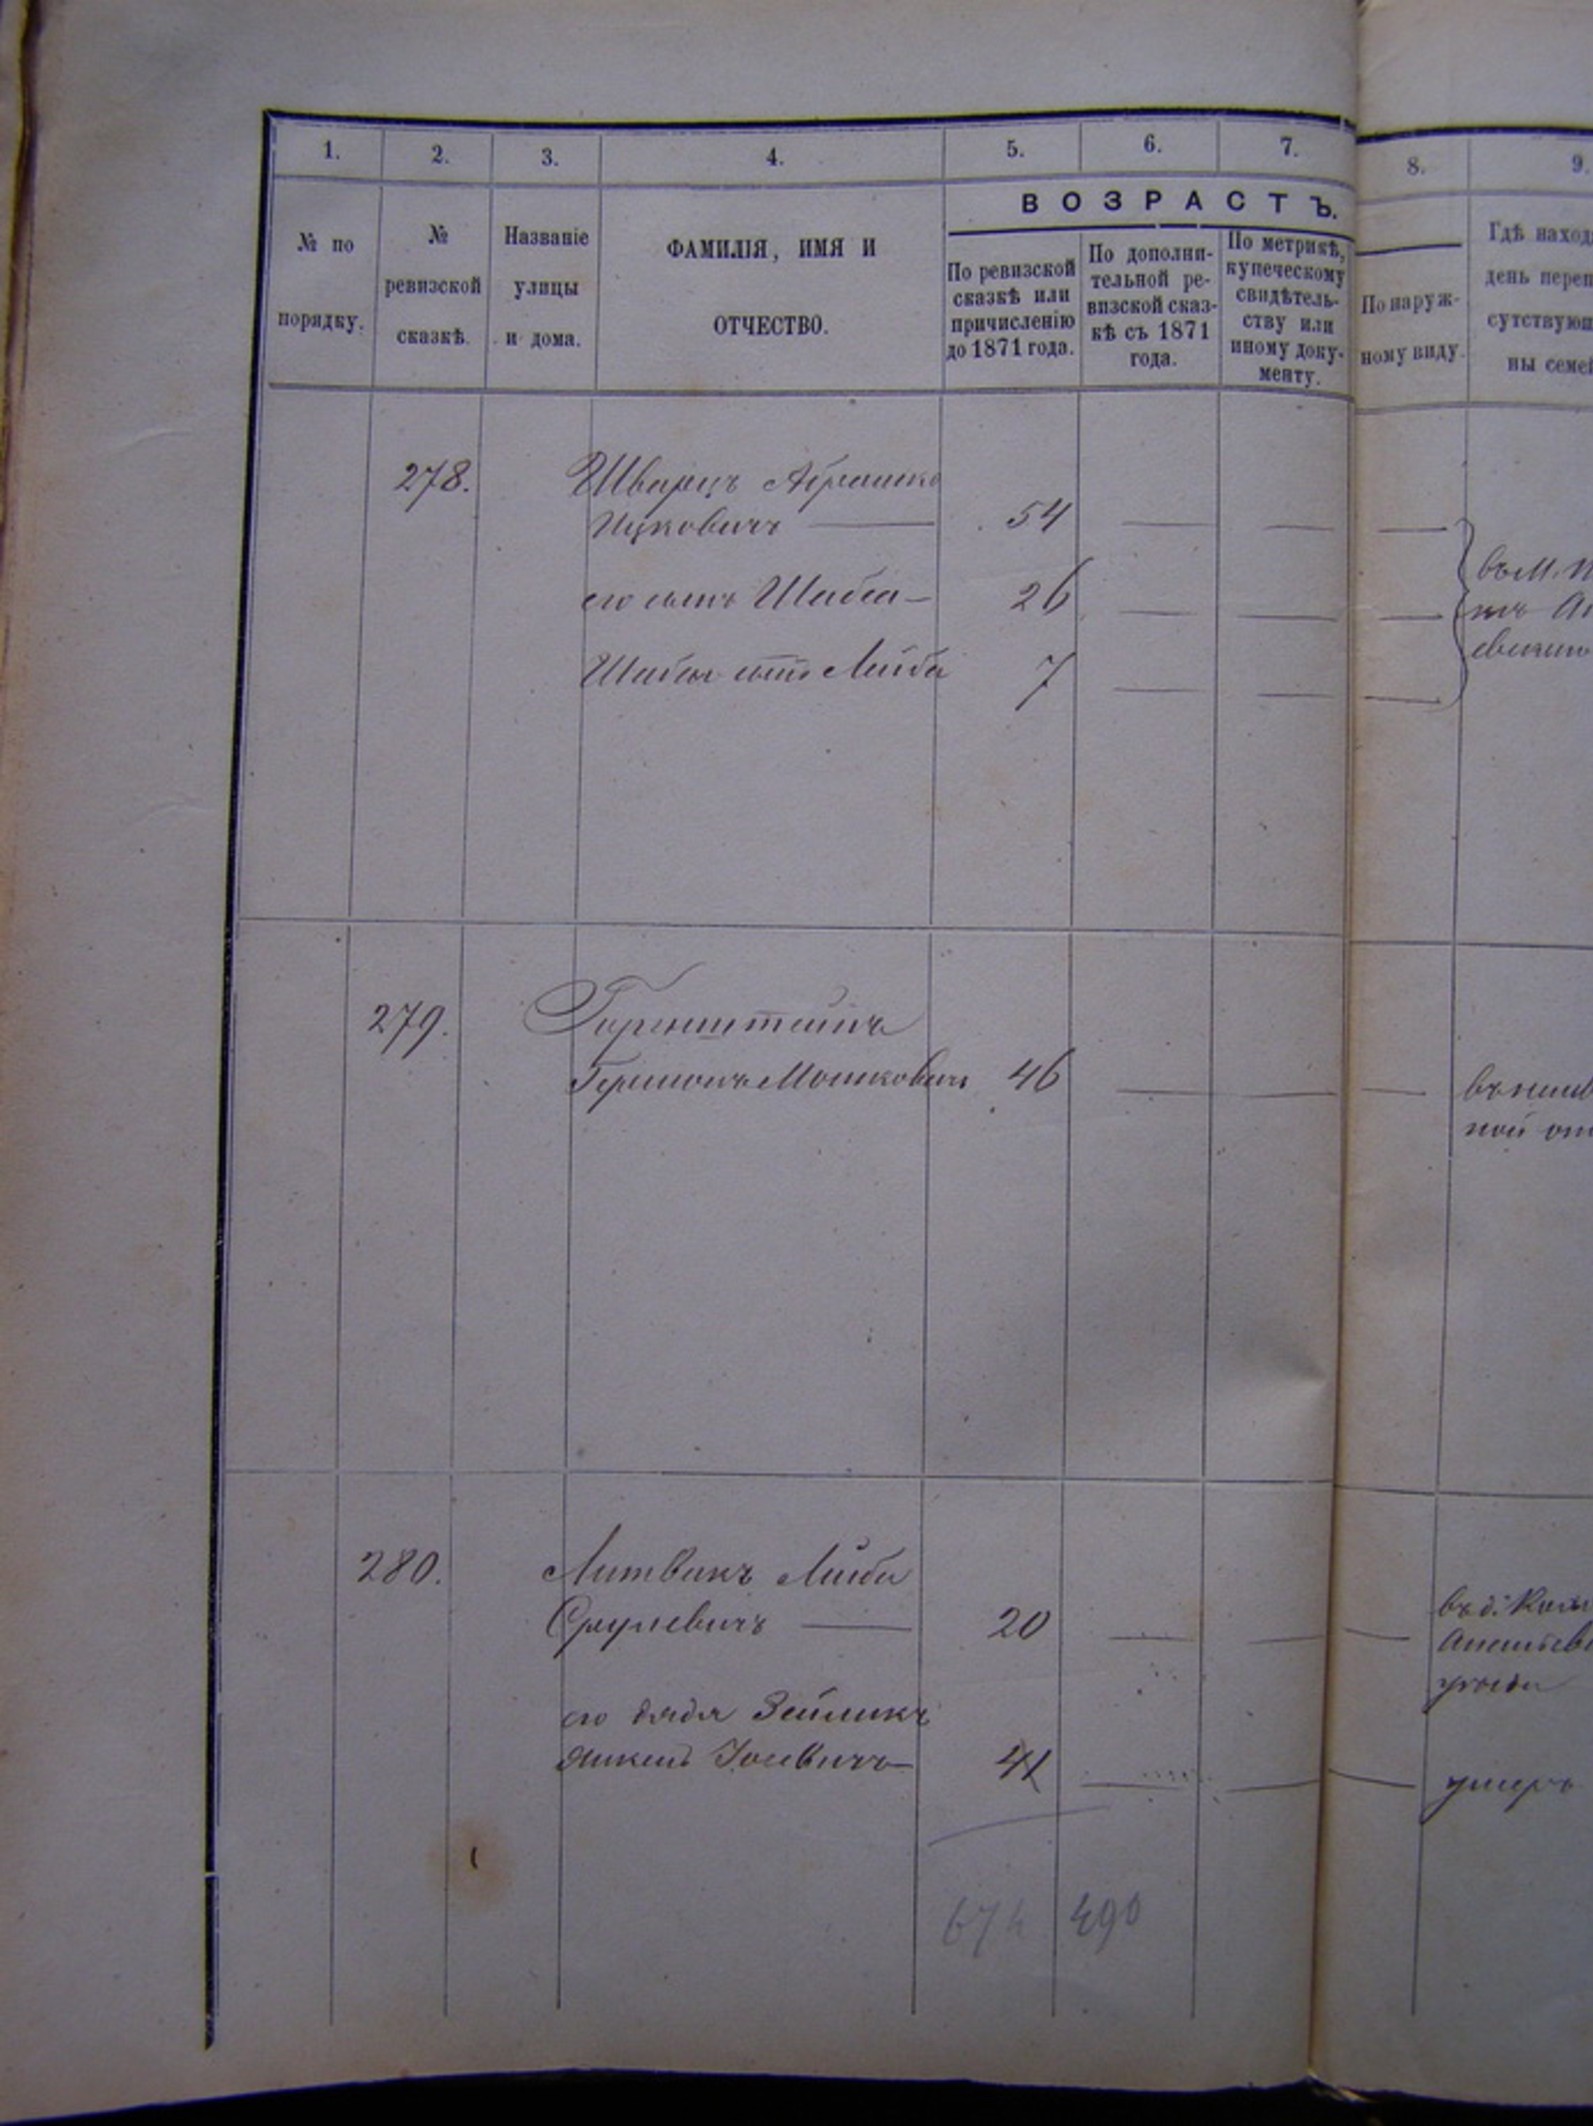 1.
2.
3.
4.
5.
6.
7.
8.
9.
ВОЗРАСТЪ.
№ по
порядку.
№
ревизской
сказкѣ.
Названіе
улицы
и дома.
ФАМИЛІЯ, ИМЯ И
ОТЧЕСТВО.
По ревизской
сказкѣ или
причисленію
до 1871 года.
По дополни-
тельной ре-
визской сказ-
кѣ съ 1871
года.
По метрикѣ,
купеческому
свидѣтель-
ству или
иному доку-
менту.
По наруж-
ному виду.
Гдѣ наход
день переп
сутствующ
ны семей
278.
Шварцъ Абрашко
Ицковичъ — 54 — — —
его сынъ Шабса — 26 — — —
Шабсы сынъ Лейба 7 — — —
въ М.
279.
Горенштейнъ
Гершонъ Мошковичъ 46 — — —
ной от
280.
Литвакъ Лейба
Срулевичъ — 20 — — —
въ д.
Ананьев
уѣзда
его дядя Зейликъ
Янкель Іосевичъ 41 — — — умеръ
674 490